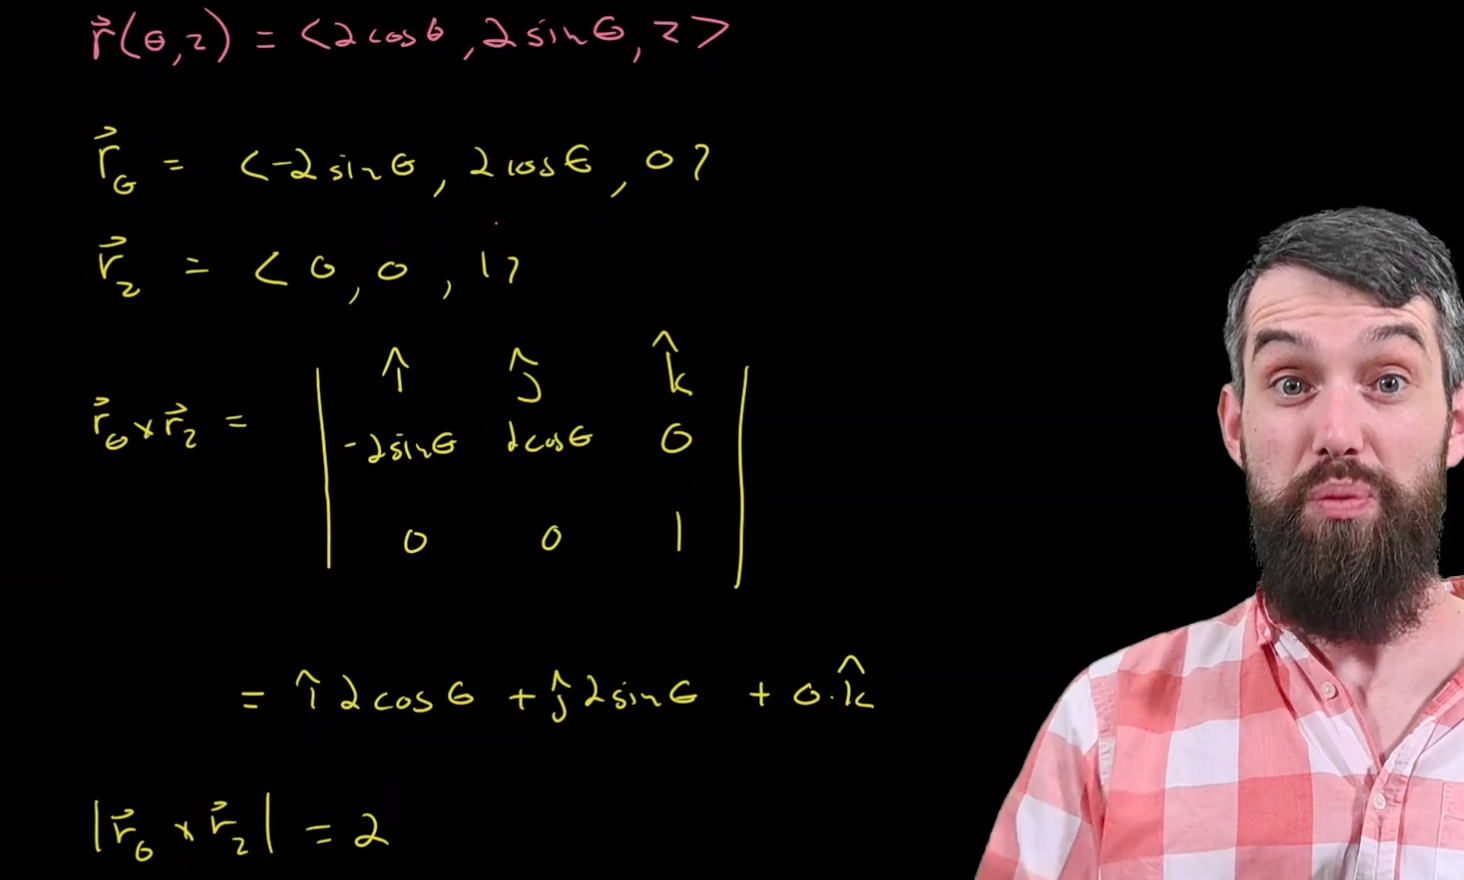 r⃗(θ,z) = <2cosθ, 2sinθ, z>
r⃗_θ = <-2sinθ, 2cosθ, 0>
r⃗_z = <0, 0, 1>
î ĵ k̂
r⃗_θ × r⃗_z = | -2sinθ 2cosθ 0 |
0 0 1
= î 2cosθ + ĵ 2sinθ + 0·k̂
|r⃗_θ × r⃗_z| = 2